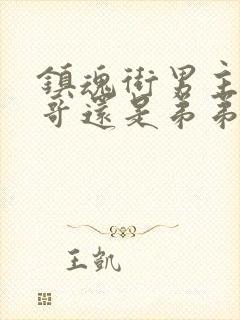 鎮魂街男主
哥還是弟弟
王凱